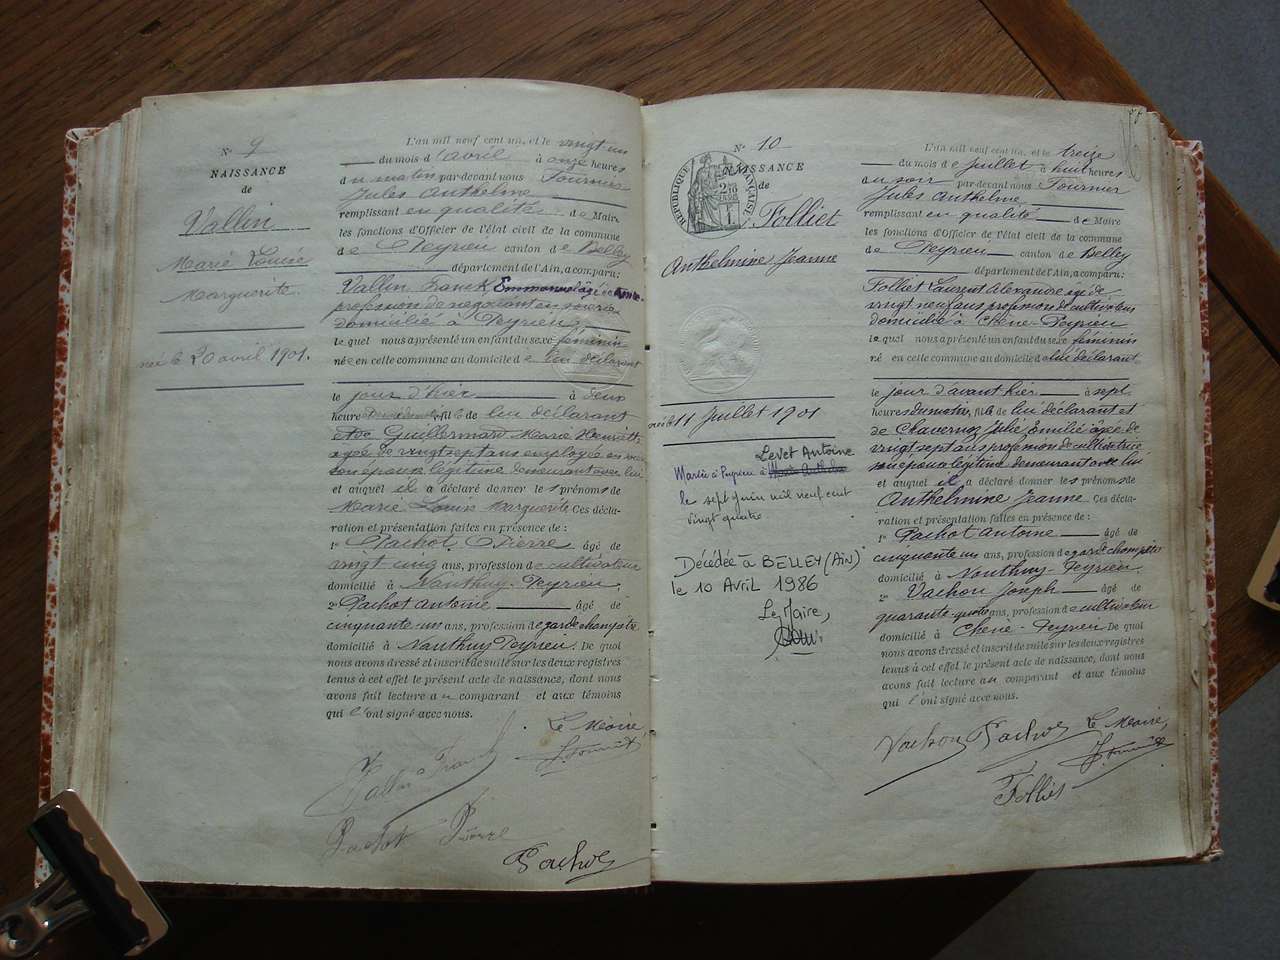 N° 9
NAISSANCE
de
Vallin
Marie Louise
Marguerite
née le 20 avril 1901.
L'an mil neuf cent un, et le vingt un
du mois d'avril à onze heures
du matin par-devant nous Fournier
Jules Anthelme
remplissant en qualité de Maire
les fonctions d'Officier de l'état civil de la commune
de Peyrieu canton de Belley
département de l'Ain, a comparu:
Vallin Franck Emmanuel âgé de
profession de negociant en soierie
domicilié à Peyrieu
lequel nous a présenté un enfant du sexe féminin
née en cette commune au domicile de lui déclarant
le jour d'hier à deux
heures fille de lui déclarant
et de Guillermard Marie Henriette
agée de vingt sept ans employée en soierie
son épouse légitime demeurant avec lui
et auquel il a déclaré donner les prénoms de
Marie Louise Marguerite Ces décla-
ration et présentation faites en présence de :
1° Pachot Pierre âgé de
vingt cinq ans, profession de cultivateur
domicilié à Nanthuy-Peyrieu,
2° Pachot Antoine âgé de
cinquante-un ans, profession de garde champêtre
domicilié à Nanthuy Peyrieu. De quoi
nous avons dressé et inscrit de suite sur les deux registres
tenus à cet effet le présent acte de naissance, dont nous
avons fait lecture au comparant et aux témoins
qui l'ont signé avec nous.
Le Maire,
Vallin Franck
J Fournier
Pachot Pierre
Pachot
N° 10
NAISSANCE
de
RÉPUBLIQUE FRANÇAISE
Folliet
Anthelmine Jeanne
née le 11 Juillet 1901
Levet Antoine
Mariée à Peyrieu à
le sept juin mil neuf cent
vingt quatre.
Décédée à BELLEY (Ain)
le 10 Avril 1986
Le Maire,
L'an mil neuf cent un, et le treize
du mois de Juillet à huit heures
du soir par-devant nous Fournier
Jules Anthelme
remplissant en qualité de Maire
les fonctions d'Officier de l'état civil de la commune
de Peyrieu canton de Belley
département de l'Ain, a comparu:
Folliet Laurent Alexandre âgé de
vingt neuf ans profession de cultivateur
domicilié à Chêne-Peyrieu
lequel nous a présenté un enfant du sexe féminin
né en cette commune au domicile de lui déclarant
le jour d'avant hier à sept
heures du matin, fille de lui déclarant et
de Chavernoz Julie Emilie âgée de
vingt sept ans profession de cultivatrice
son épouse légitime demeurant avec lui
et auquel il a déclaré donner les prénoms de
Anthelmine Jeanne Ces décla-
ration et présentation faites en présence de :
1° Pachot Antoine âgé de
cinquante un ans, profession de garde champêtre
domicilié à Nanthuy-Peyrieu
2° Vachon Joseph âgé de
quarante-quatre ans, profession de cultivateur
domicilié à Chêne-Peyrieu De quoi
nous avons dressé et inscrit de suite sur les deux registres
tenus à cet effet le présent acte de naissance, dont nous
avons fait lecture au comparant et aux témoins
qui l'ont signé avec nous.
Vachon Pachot Le Maire,
J Fournier
Folliet